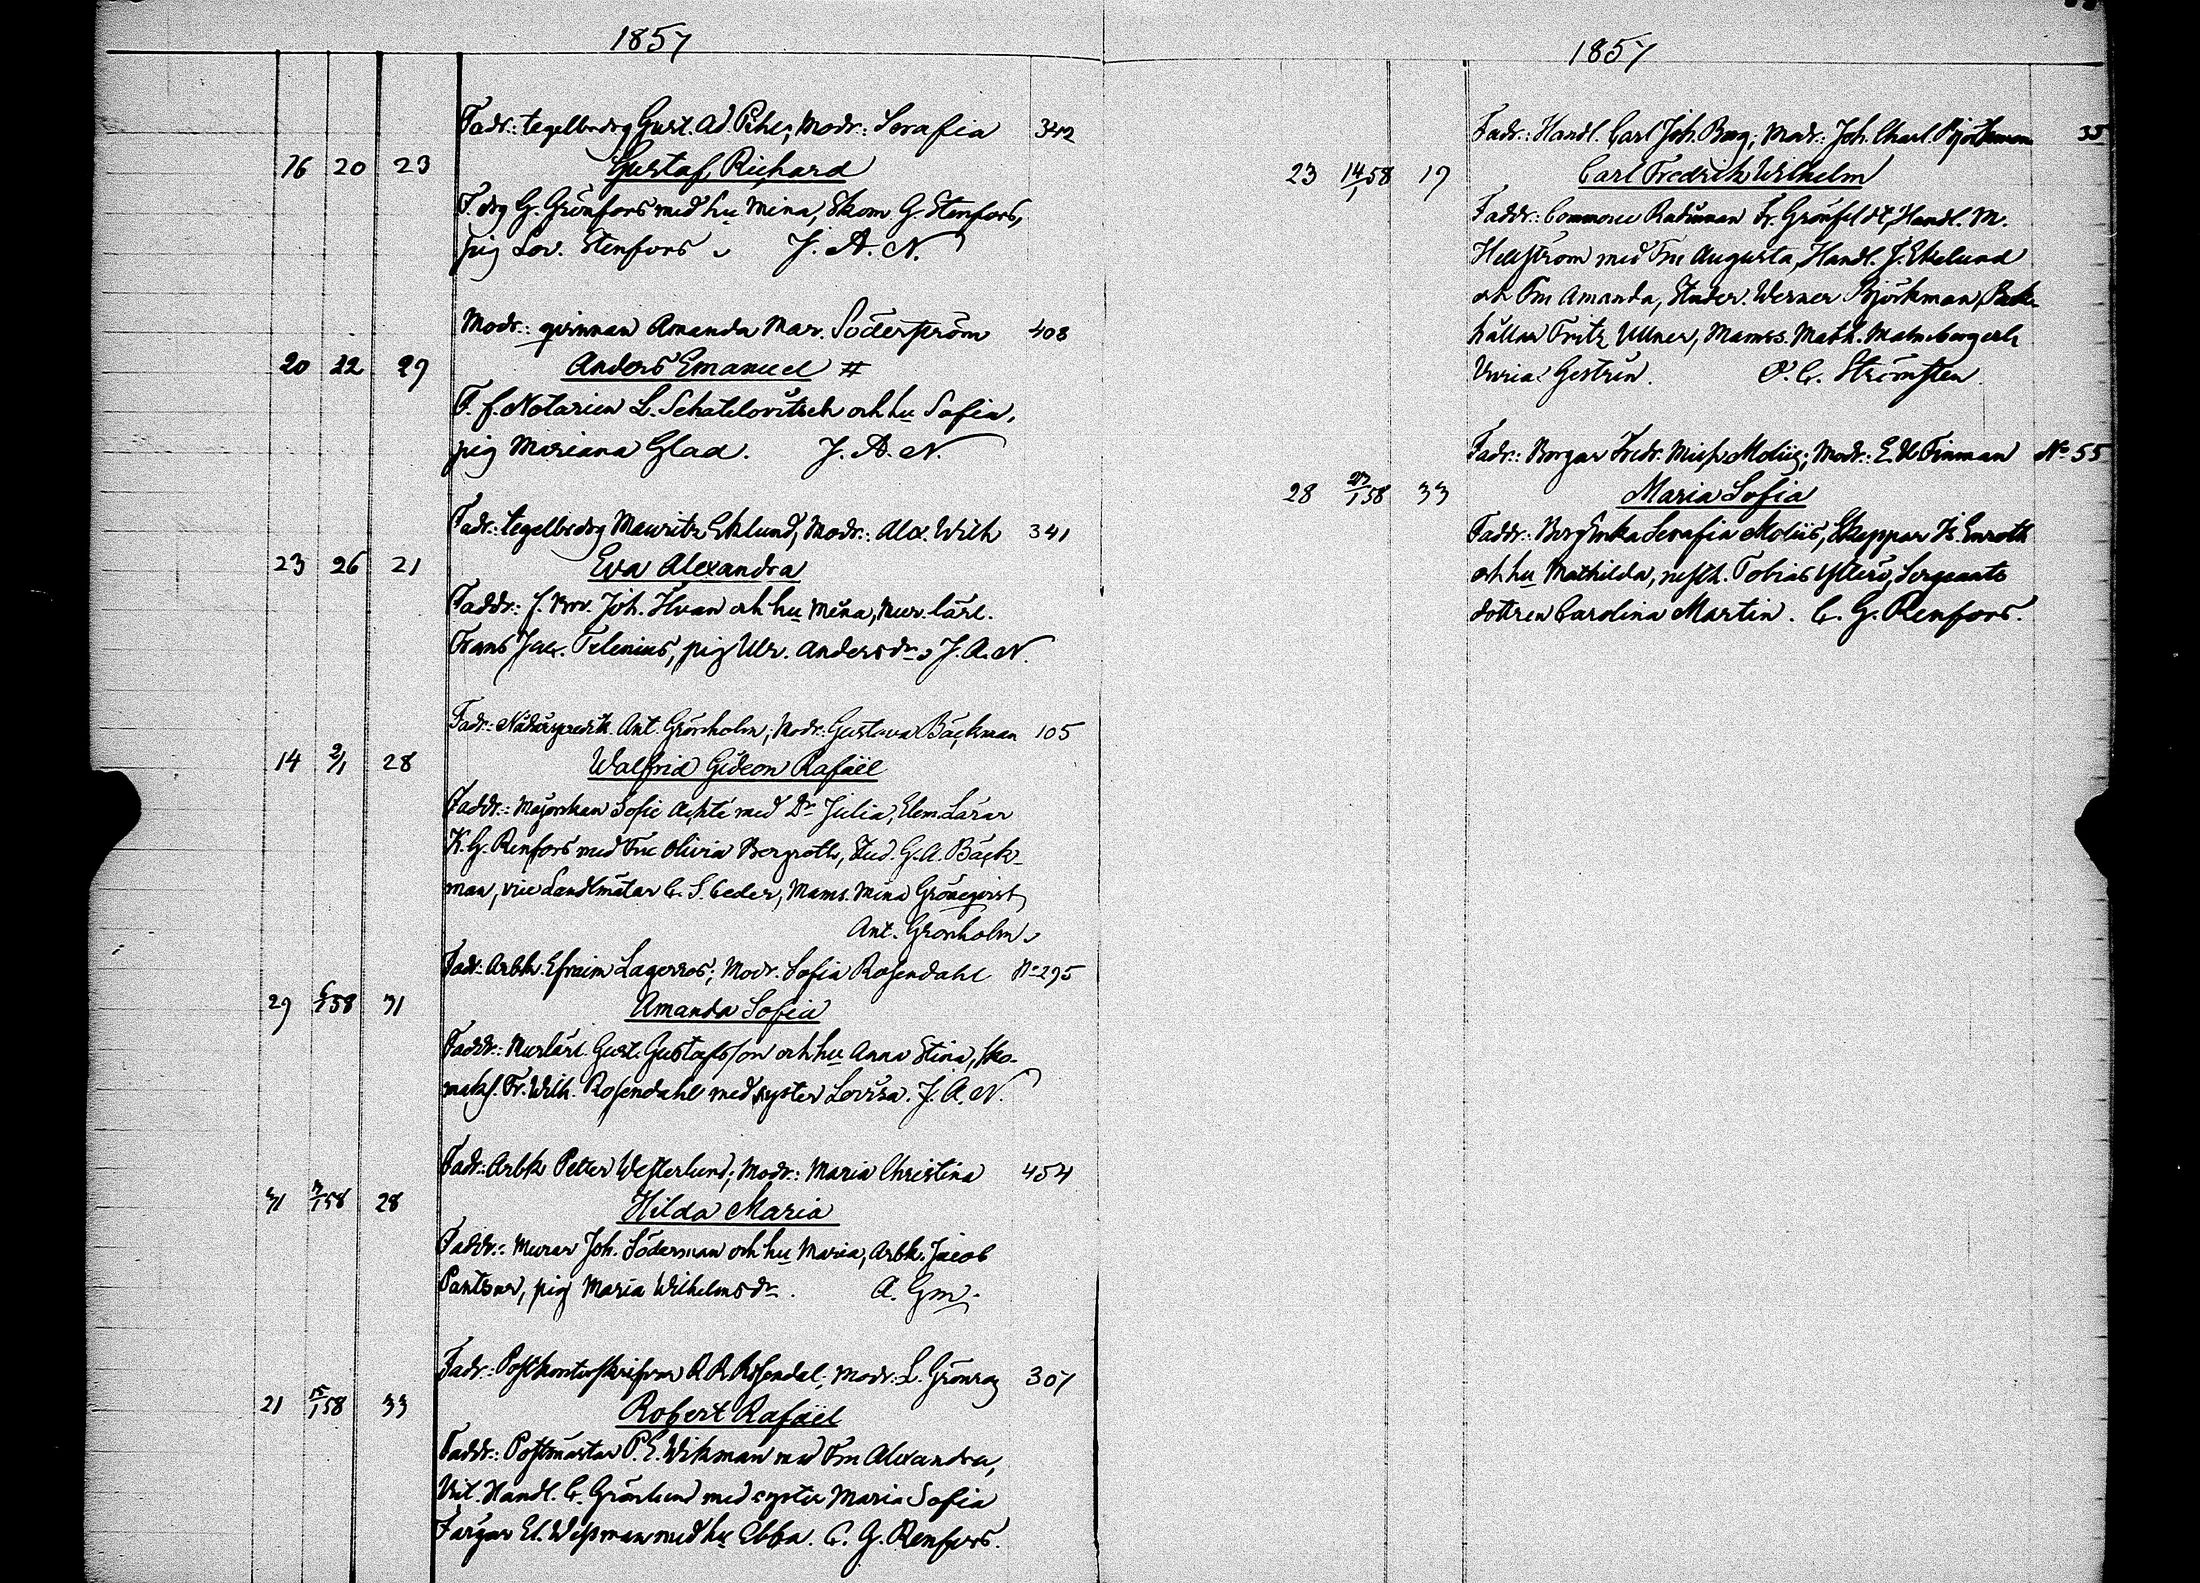 1857
Fadr.: tegelbrdrg Gust. Ad. Pihl; Modr.: Serafia 342
16 20 23 Gustaf Richard
F. drg G. Grönfors med hu Mina, Skom. G. Stenfors,
pig Lov. Stenfors J. A. N.
Modr.: qvinnan Amanda Mar. Söderström 408
20 22 29 Anders Emanuel #
F. f. Notarien L. Schatelovitsch och hu Sofia,
pig Mariana Glad. J. A. N.
Fadr.: tegelbrdrg Mauritz Eklund, Modr.: Alex. Wilh 341
23 26 21 Eva Alexandra
Faddr.: f. Joh. Hvan och hu Mina, Mur. lärl.
Frans Jac. Telenius, pig Ulr. Andersdr J. A. N.
Fadr.: Nådårspredik. Ant. Grönholm; Modr. Gustava Bäckman 105
14 2/1 28 Walfrid Gideon Rafaël
Faddr.: Majorskan Sofie Achté med Dr Julia, Elem. Lärar
K. G. Renfors med Fru Olivia Bergroth, Stud. G. A. Bäck-
man, vice Landtmätar C. S. Ceder, Mams. Mina Grönqvist
Ant. Grönholm.
Fadr: Arbk. Efraim Lagerros; Modr. Sofia Rosendahl No 295
29 6/1 58 31 Amanda Sofia
Faddr.: Murlärl. Gust. Gustafsson och hu Anna Stina, sko-
maks. Fr. Wilh. Rosendahl med syster Lovisa. J. A. N.
Fadr: Arbk Petter Westerlund; Modr.: Maria Christina 454
31 3/1 58 28 Hilda Maria
Faddr.: Murar Joh. Söderman och hu Maria, Arbk. Jacob
Pantsar, pig Maria Wilhelmsdr. A. Gm.
Fadr.: Postkontorskrifvar R. R. Rosendal; Modr.: L. Grönroz 307
21 15/1 58 33 Robert Rafaël
Faddr.: Postmästar P. E. Wikman med Fru Alexandra,
Vict. Handl. C. Grönlund med syster Maria Sofia
Färgar Ed. Wessman med hu Ebba. C. G. Renfors.
1857
Fadr.: Handl. Carl Joh. Berg; Modr.: Joh. Charl. Björkman 35
23 14/1 58 19 Carl Fredrik Wilhelm
Faddr.: Commerce Rådman Fr. Grönfeldt, Handl. M.
Hellström med Fru Augusta, Handl. J. Ekelund
och Fru Amanda, Studer. Werner Björkman, Bok-
hållar Fritz Ullner, Mamss. Math. Malmberg och
Maria Gestrin. O. C. Strömsten.
Fadr.: Borgar Fredr. Mich. Moliis; Modr.: E. U. Finman No 55
28 27/1 58 33 Maria Sofia
Faddr.: Borg Enka Serafia Moliis, Skeppar K. Enroth
och hu Mathilda, Tobias Sergeants
dottren Carolina Martin. C. G. Renfors.